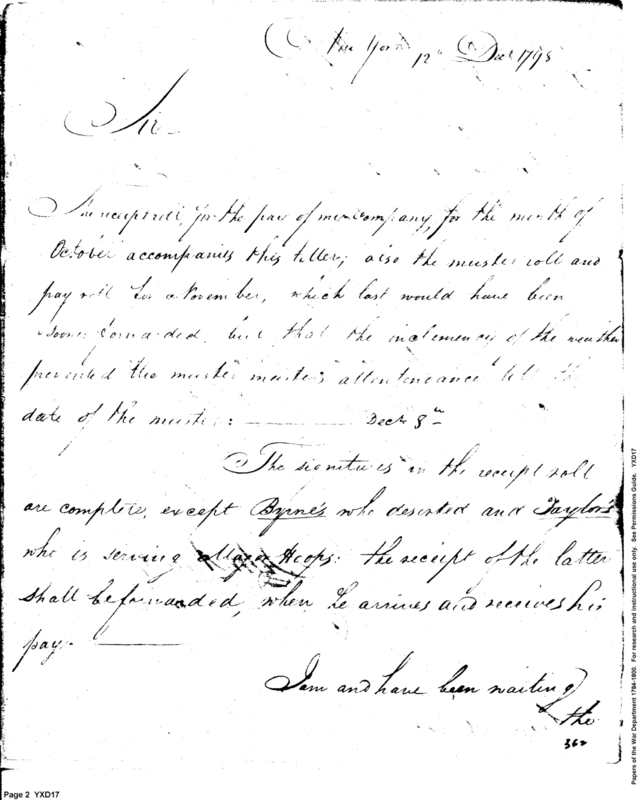 New York 12th Dec 1798
Sir
The receipt roll, for the pay of my company, for the month of
October accompanies this letter; also the muster roll and
pay roll for November, which last would have been
sooner forwarded, but that the inclemency of the weather
prevented the muster master's attendance till the
date of the muster: Decr 8th
The signatures in the receipt roll
are complete, except Byrne's who deserted and Taylor's
who is serving Major Hoops: the receipt of the latter
shall be forwarded, when he arrives and receives his
pay.
I am and have been waiting
the
362
Page 2 YXD17
Papers of the War Department 1784-1800. For research and instructional use only. See Permissions Guide. YXD17